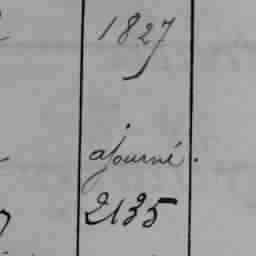 1827
ajourné.
2135